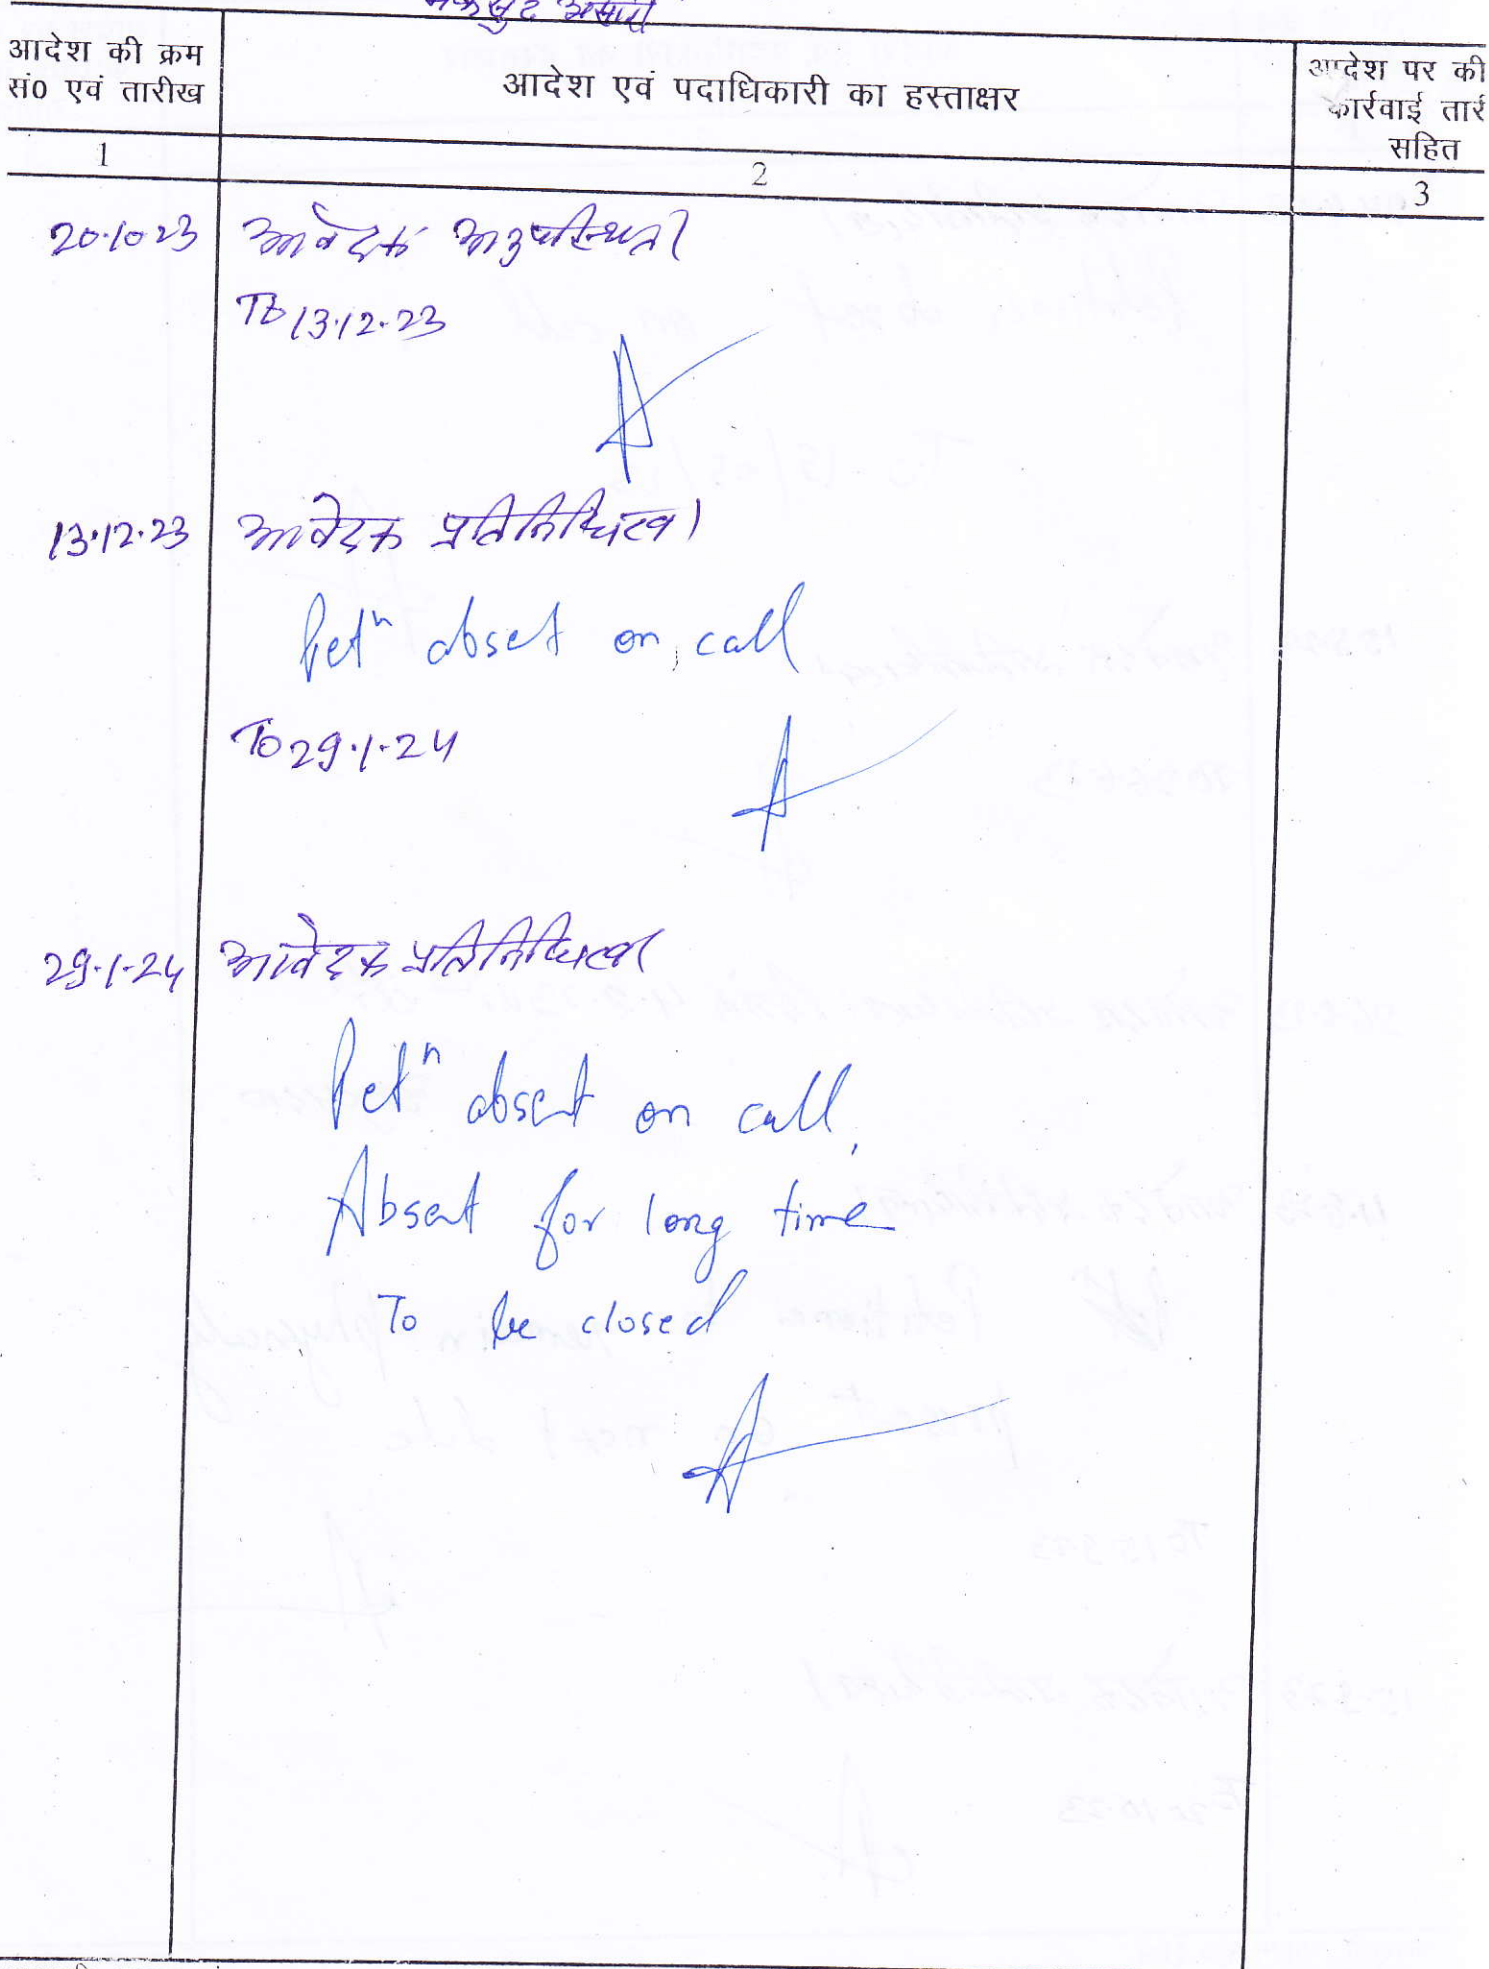 मकसुद अंसारी
आदेश की क्रम
सं० एवं तारीख
आदेश एवं पदाधिकारी का हस्ताक्षर
आदेश पर की
कार्रवाई तारी
सहित
1
2
3
20.10.23 आवेदक अनुपस्थित।
To 13.12.23
13.12.23 आवेदक प्रतिनिधित्व।
Petⁿ abset on call
To 29.1.24
29.1.24 आवेदक प्रतिनिधित्व।
Petⁿ absent on call,
Absent for long time
To be closed